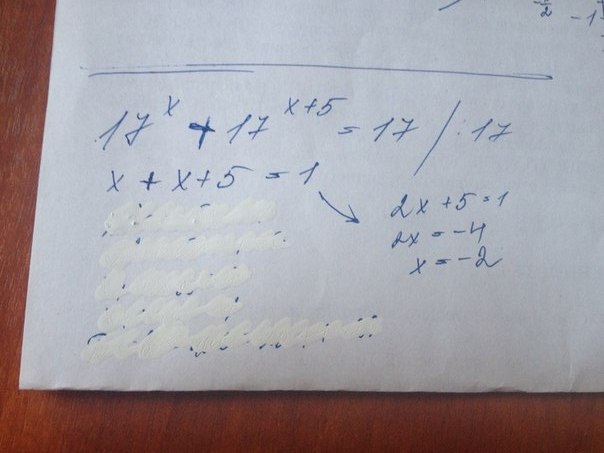 17^x + 17^(x+5) = 17 / :17
x + x+5 = 1
2x +5 = 1
2x = -4
x = -2